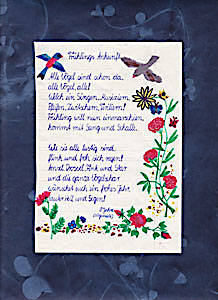 Frühlings Ankunft
Alle Vögel sind schon da,
alle Vögel, alle!
Welch ein Singen, Musizieren,
Pfeifen, Zwitschern, Trillern!
Frühling will nun einmarschieren,
kommt mit Sang und Schalle.
Wie sie alle lustig sind,
flink und froh sich regen!
Amsel, Drossel, Fink und Star
und die ganze Vogelschar
wünschet euch ein frohes Jahr,
lauter Heil und Segen!